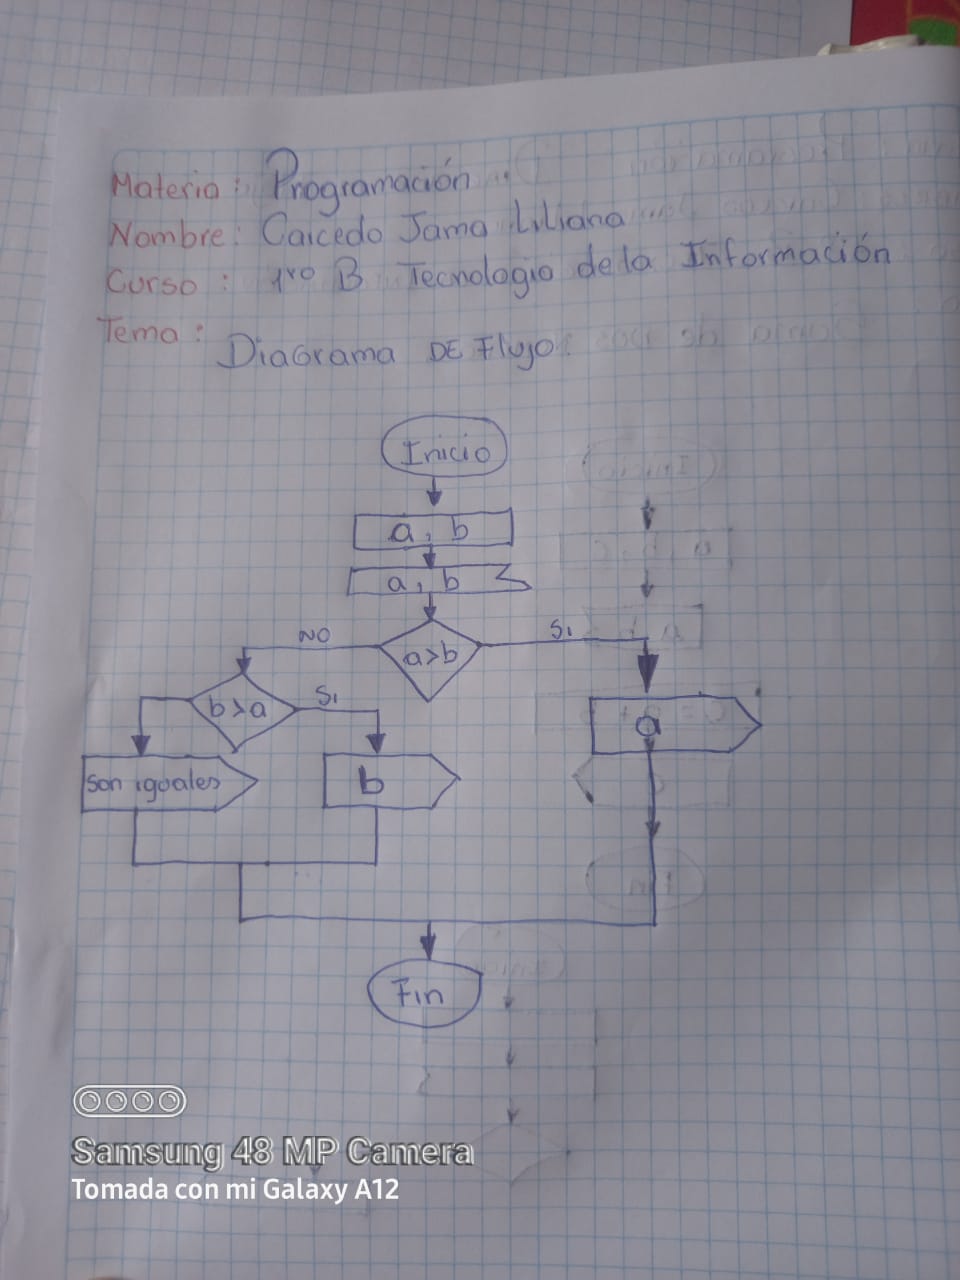 Materia: Programación
Nombre: Caicedo Jama Liliana
Curso: 1ro B Tecnologia de la Información
Tema: Diagrama DE Flujo
Inicio
a, b
a, b
a>b
NO
Si
b>a
Si
a
Son iguales
b
Fin
Samsung 48 MP Camera
Tomada con mi Galaxy A12